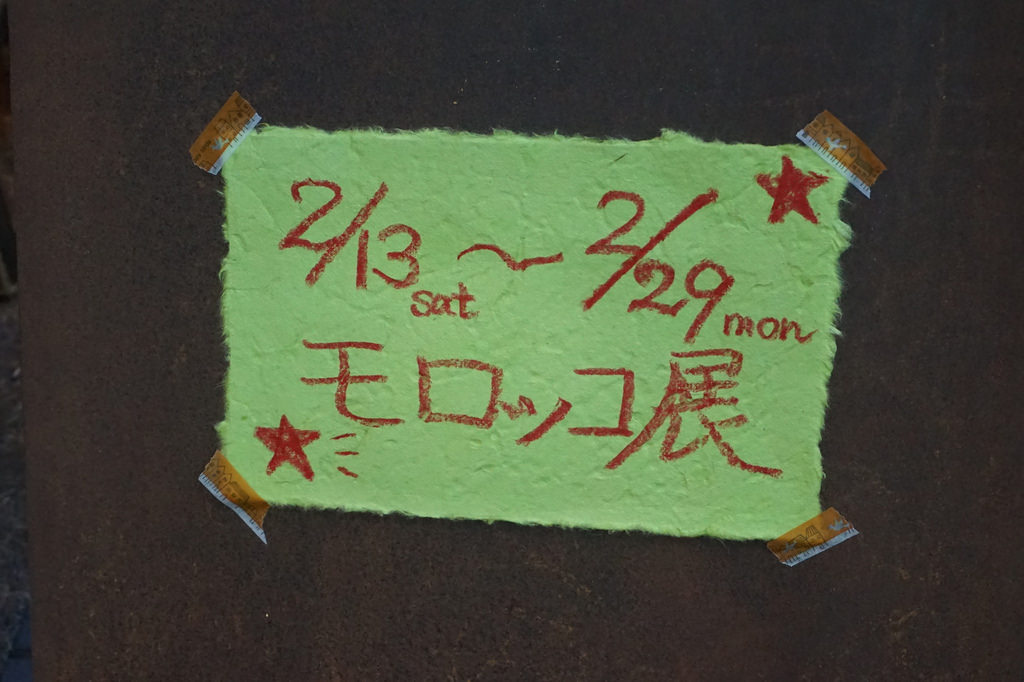 2/13 sat 〜 2/29 mon
モロッコ展